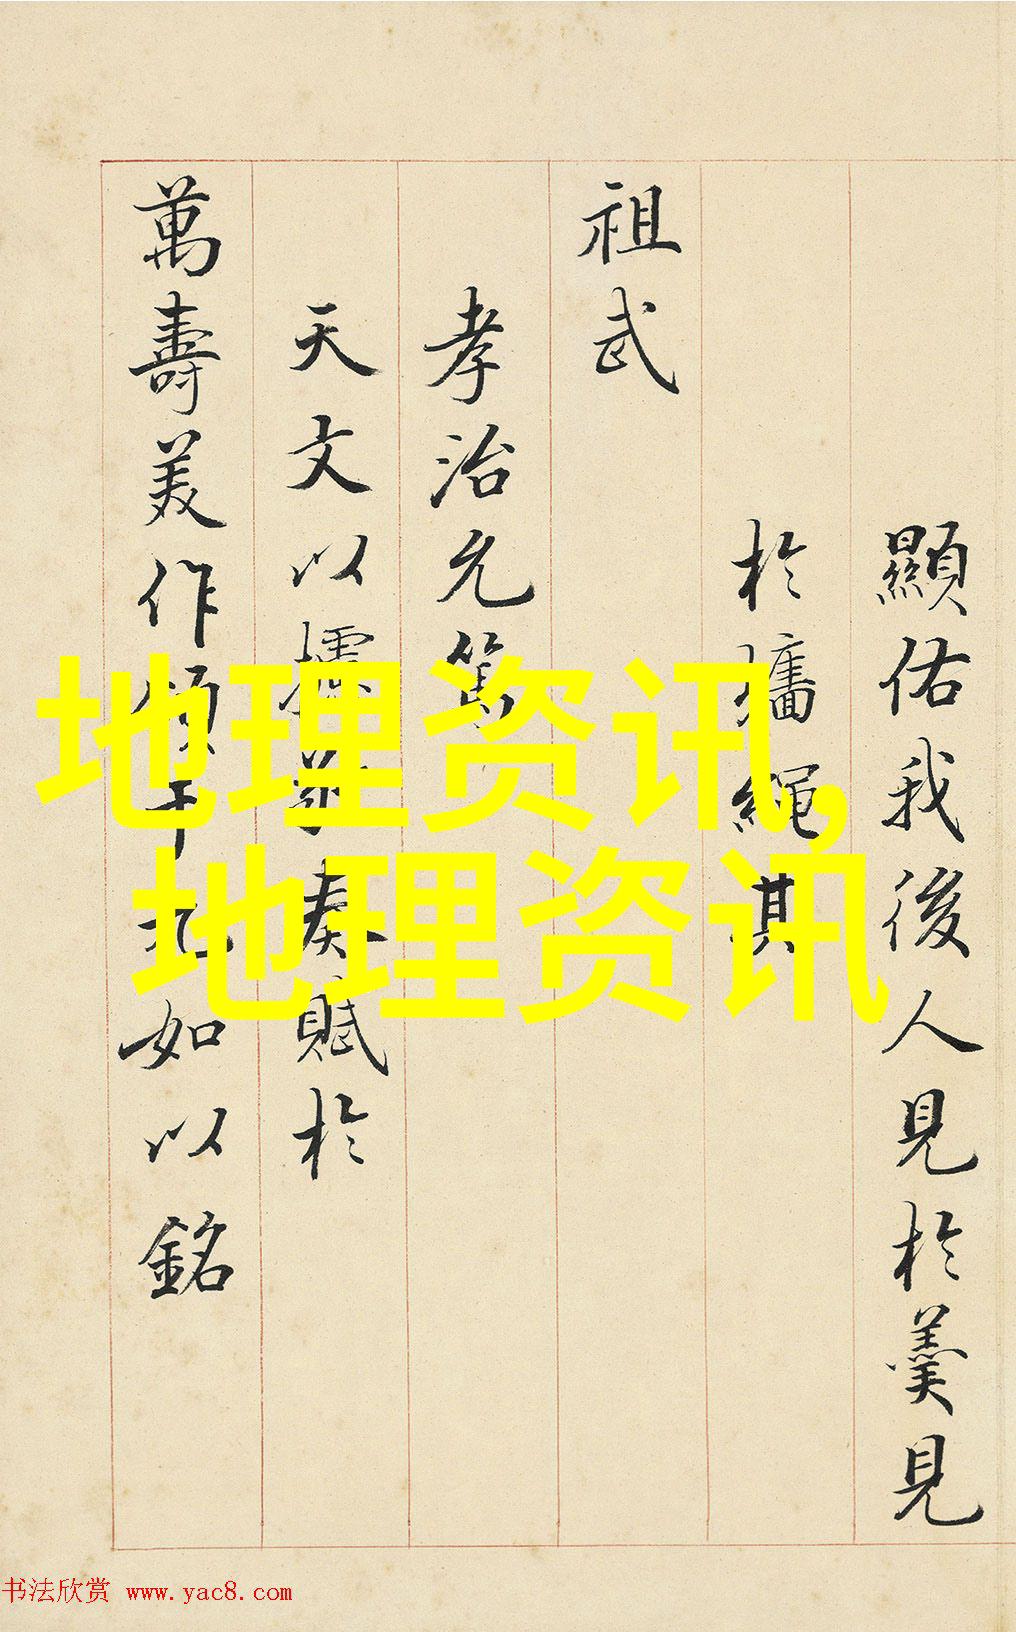 顯佑我後人見於羹見
於墻繩其
祖武
孝治允篤
天文以摛奏賦於
萬壽美作頌如以銘
地理资讯,
地理资讯
书法欣赏 www.yac8.com